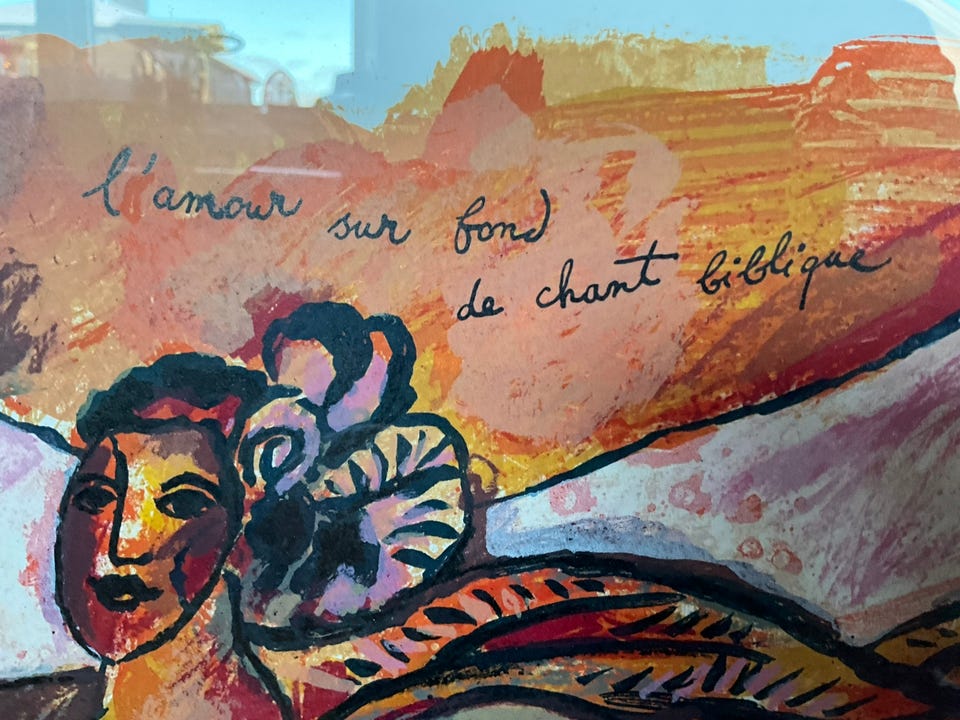 l'amour sur fond
de chant biblique